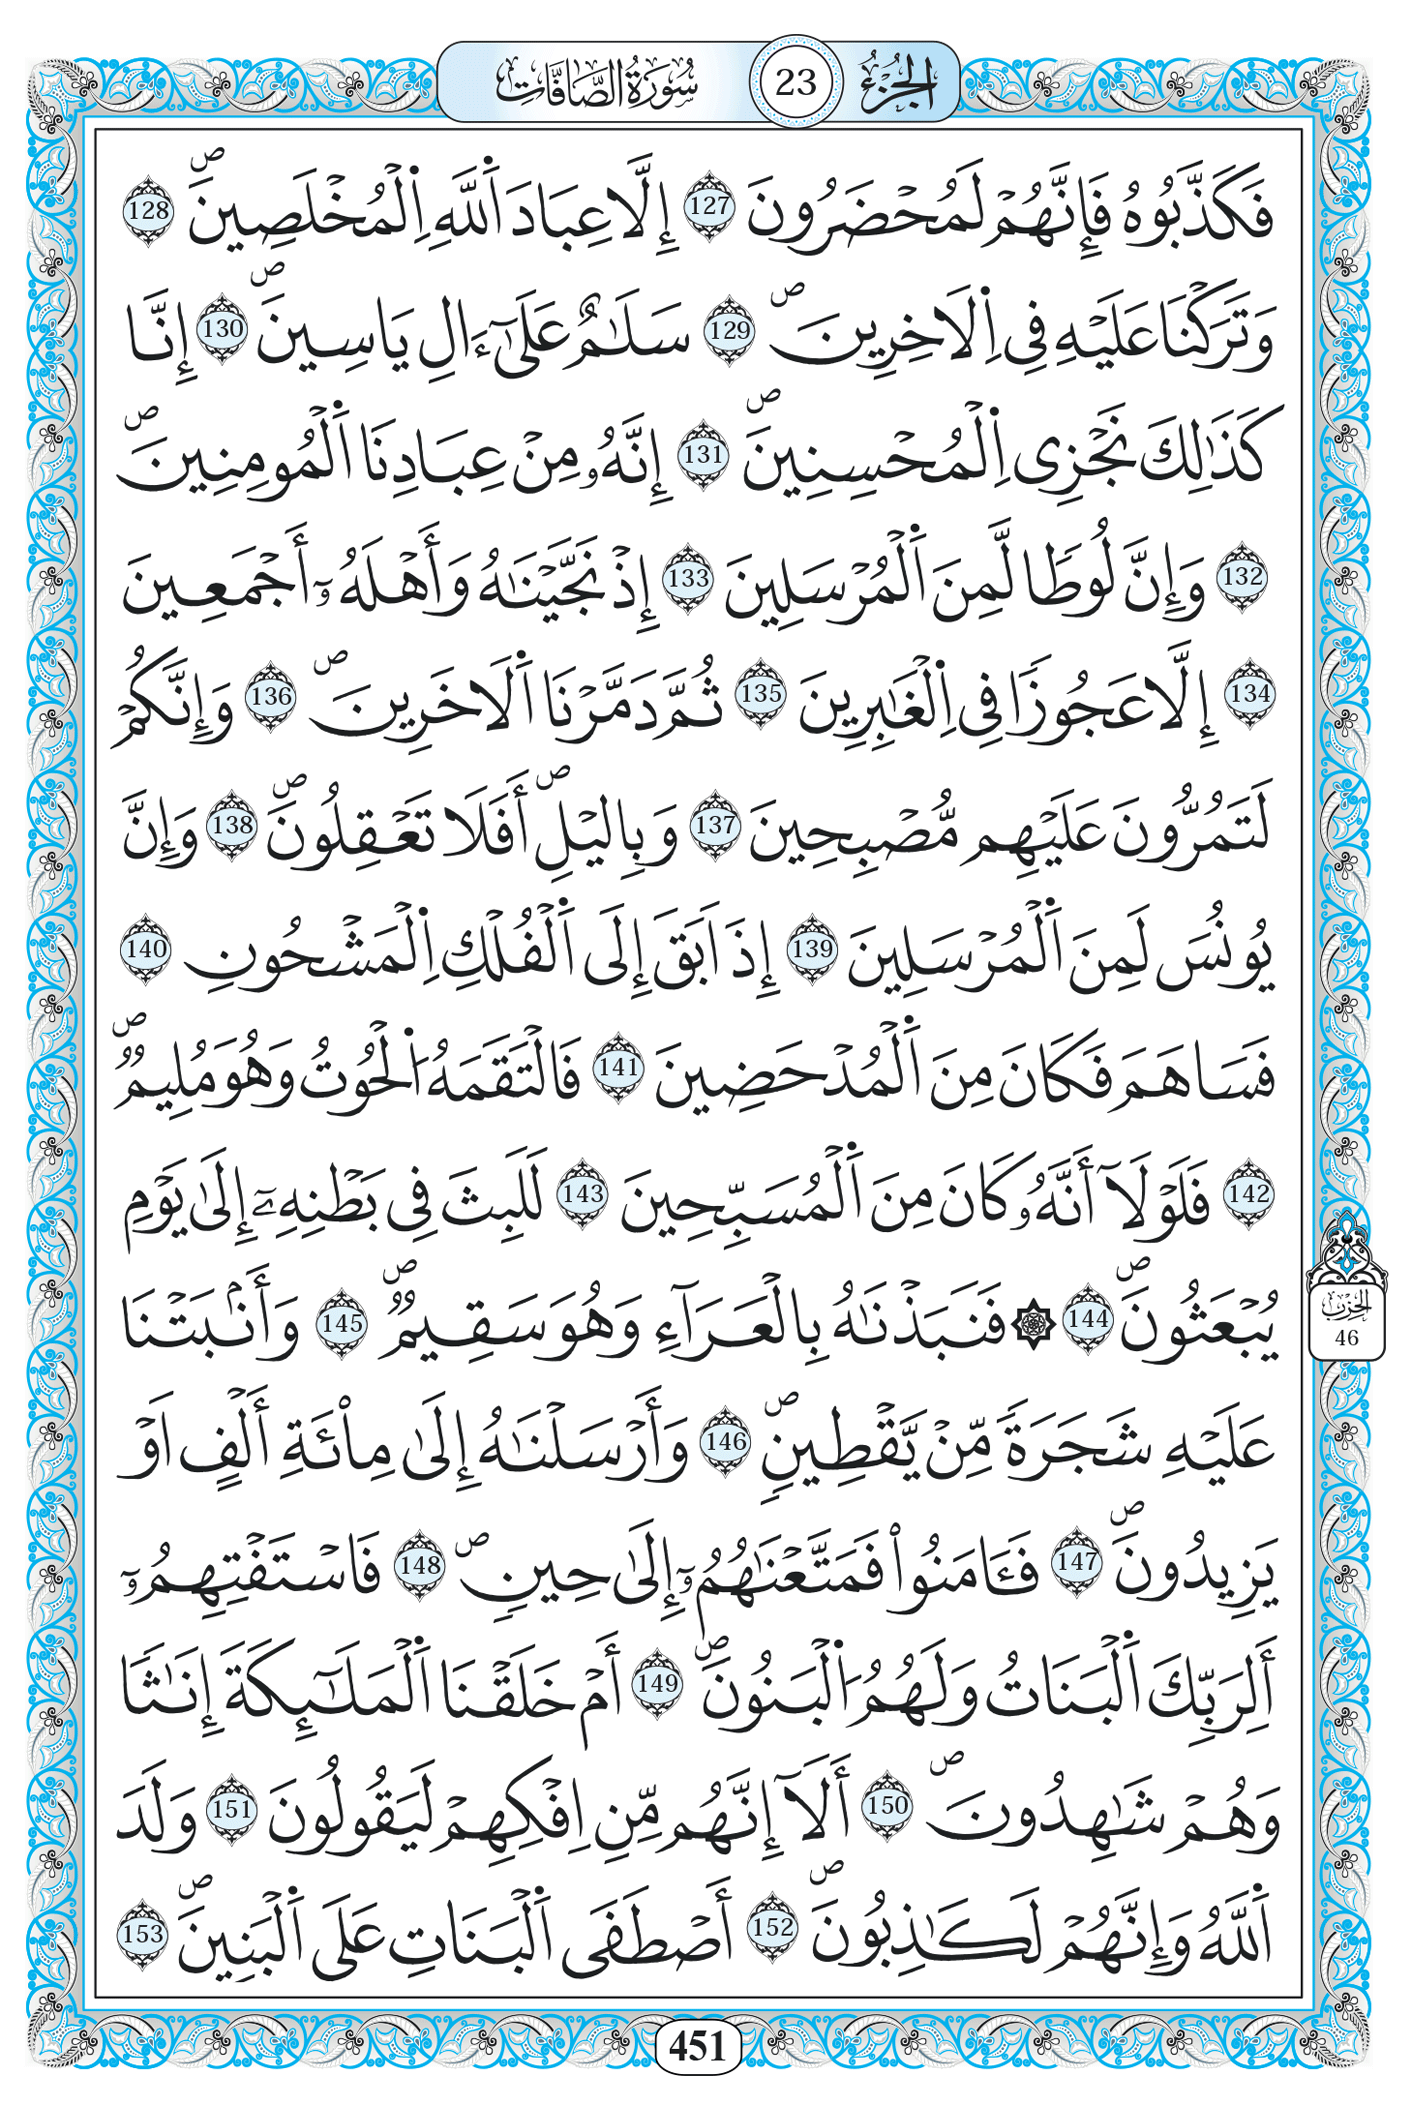 الجزء 23 سورة الصافات
فَكَذَّبُوهُ فَإِنَّهُمْ لَمُحْضَرُونَ 127 إِلَّا عِبَادَ اَ۬للَّهِ اِ۬لْمُخْلَصِينَۖ 128
وَتَرَكْنَا عَلَيْهِ فِي اِ۬لَاخِرِينَۖ 129 سَلَٰمٌ عَلَىٰٓ ءَالِ يَاسِينَۖ 130 إِنَّا
كَذَٰلِكَ نَجْزِي اِ۬لْمُحْسِنِينَۖ 131 إِنَّهُۥ مِنْ عِبَادِنَا اَ۬لْمُومِنِينَۖ
132 وَإِنَّ لُوطاٗ لَّمِنَ اَ۬لْمُرْسَلِينَ 133 إِذْ نَجَّيْنَٰهُ وَأَهْلَهُۥٓ أَجْمَعِينَ
134 إِلَّا عَجُوزاٗ فِي اِ۬لْغَٰبِرِينَ 135 ثُمَّ دَمَّرْنَا اَ۬لَاخَرِينَۖ 136 وَإِنَّكُمْ
لَتَمُرُّونَ عَلَيْهِم مُّصْبِحِينَ 137 وَبِاليْلِۖ أَفَلَا تَعْقِلُونَۖ 138 وَإِنَّ
يُونُسَ لَمِنَ اَ۬لْمُرْسَلِينَ 139 إِذَ اَبَقَ إِلَى اَ۬لْفُلْكِ اِ۬لْمَشْحُونِ 140
فَسَاهَمَ فَكَانَ مِنَ اَ۬لْمُدْحَضِينَ 141 فَالْتَقَمَهُ اُ۬لْحُوتُ وَهُوَ مُلِيمٞۖ
142 فَلَوْلَآ أَنَّهُۥ كَانَ مِنَ اَ۬لْمُسَبِّحِينَ 143 لَلَبِثَ فِي بَطْنِهِۦٓ إِلَىٰ يَوْمِ
يُبْعَثُونَۖ 144 ۞ فَنَبَذْنَٰهُ بِالْعَرَآءِ وَهُوَ سَقِيمٞۖ 145 وَأَنۢبَتْنَا
عَلَيْهِ شَجَرَةٗ مِّنْ يَّقْطِينٖۖ 146 وَأَرْسَلْنَٰهُ إِلَىٰ مِاْئَةِ أَلْفٍ اَوْ
يَزِيدُونَۖ 147 فَـَٔامَنُواْ فَمَتَّعْنَٰهُمُۥٓ إِلَىٰ حِينٖۖ 148 فَاسْتَفْتِهِمُۥٓ
أَلِرَبِّكَ اَ۬لْبَنَاتُ وَلَهُمُ اُ۬لْبَنُونَۖ 149 أَمْ خَلَقْنَا اَ۬لْمَلَٰٓئِكَةَ إِنَٰثاٗ
وَهُمْ شَٰهِدُونَۖ 150 أَلَآ إِنَّهُم مِّنِ اِفْكِهِمْ لَيَقُولُونَ 151 وَلَدَ
اَ۬للَّهُ وَإِنَّهُمْ لَكَٰذِبُونَۖ 152 أَصْطَفَى اَ۬لْبَنَاتِ عَلَى اَ۬لْبَنِينَۖ 153
الحزب
46
451